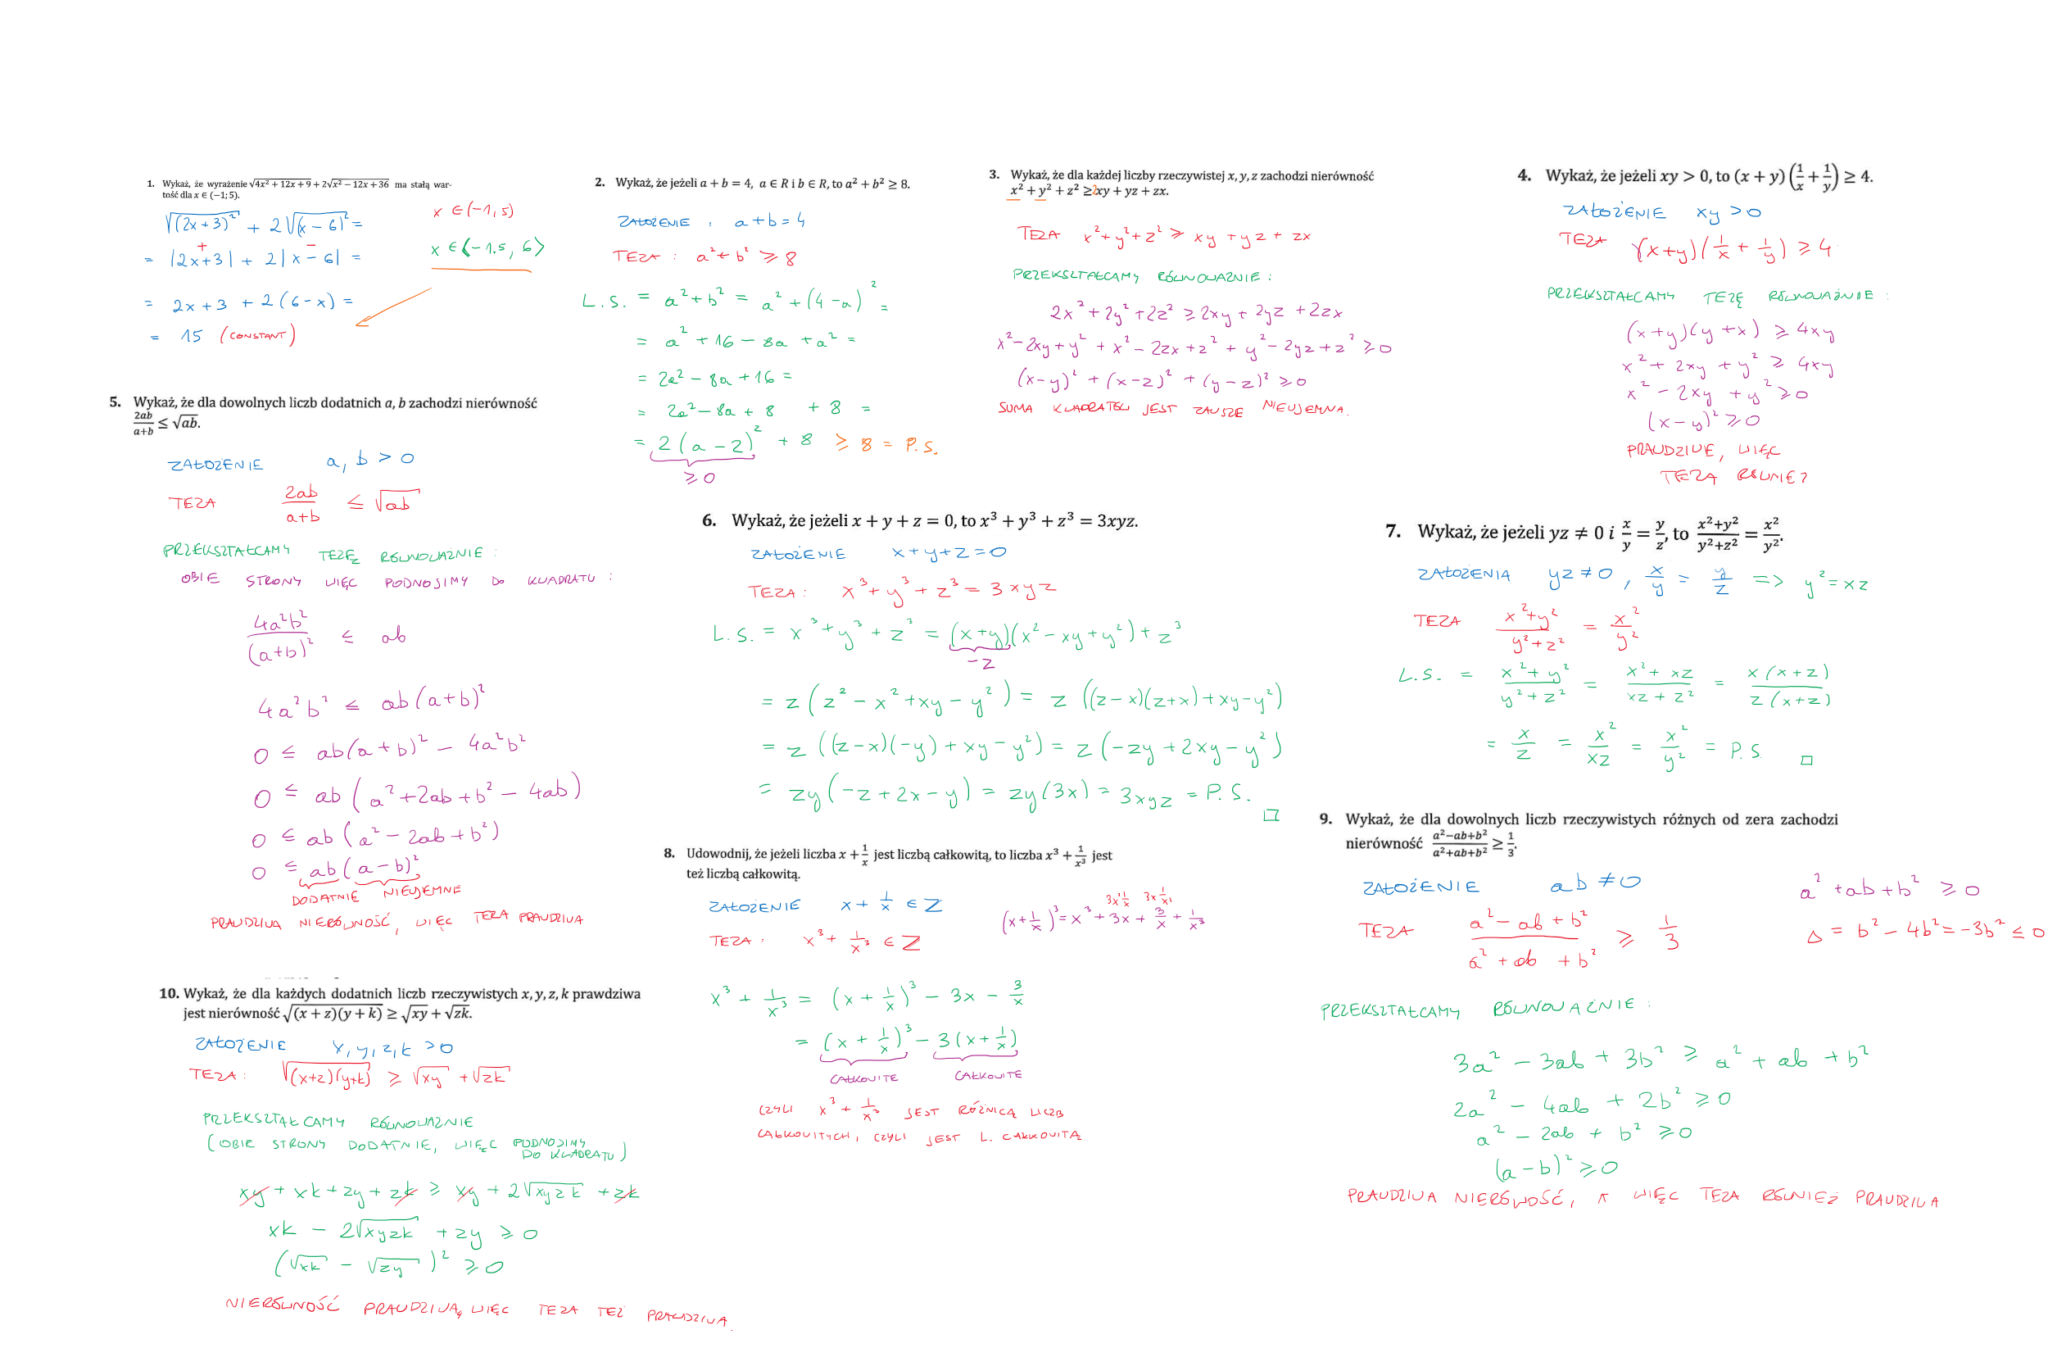 1. Wykaż, że wyrażenie √(4x² + 12x + 9) + 2√(x² − 12x + 36) ma stałą war-
tość dla x ∈ (−1; 5).
√((2x+3)²) + 2√((x−6)²) =
x ∈ (−1, 5)
+ −
= |2x+3| + 2|x−6| =
x ∈ ⟨−1.5, 6⟩
= 2x+3 + 2(6−x) =
= 15 (CONSTANT)
2. Wykaż, że jeżeli a + b = 4, a ∈ R i b ∈ R, to a² + b² ≥ 8.
ZAŁOŻENIE : a+b=4
TEZA : a²+b² ≥ 8
L.S. = a²+b² = a²+(4−a)² =
= a²+16−8a+a² =
= 2a²−8a+16 =
= 2a²−8a+8 +8 =
= 2(a−2)² + 8 ≥ 8 = P.S.
≥0
3. Wykaż, że dla każdej liczby rzeczywistej x, y, z zachodzi nierówność
x² + y² + z² ≥ xy + yz + zx.
TEZA x²+y²+z² ≥ xy+yz+zx
PRZEKSZTAŁCAMY RÓWNOWAŻNIE :
2x²+2y²+2z² ≥ 2xy+2yz+2zx
x²−2xy+y² + x²−2zx+z² + y²−2yz+z² ≥ 0
(x−y)² + (x−z)² + (y−z)² ≥ 0
SUMA KWADRATÓW JEST ZAWSZE NIEUJEMNA.
4. Wykaż, że jeżeli xy > 0, to (x + y)(1/x + 1/y) ≥ 4.
ZAŁOŻENIE xy > 0
TEZA (x+y)(1/x + 1/y) ≥ 4
PRZEKSZTAŁCAMY TEZĘ RÓWNOWAŻNIE :
(x+y)(y+x) ≥ 4xy
x² + 2xy + y² ≥ 4xy
x² − 2xy + y² ≥ 0
(x−y)² ≥ 0
PRAWDZIWE, WIĘC
TEZA RÓWNIEŻ
5. Wykaż, że dla dowolnych liczb dodatnich a, b zachodzi nierówność
2ab/(a+b) ≤ √ab.
ZAŁOŻENIE a, b > 0
TEZA 2ab/(a+b) ≤ √ab
PRZEKSZTAŁCAMY TEZĘ RÓWNOWAŻNIE :
OBIE STRONY WIĘC PODNOSIMY DO KWADRATU :
4a²b²/(a+b)² ≤ ab
4a²b² ≤ ab(a+b)²
0 ≤ ab(a+b)² − 4a²b²
0 ≤ ab(a²+2ab+b²−4ab)
0 ≤ ab(a²−2ab+b²)
0 ≤ ab(a−b)²
DODATNIE NIEUJEMNE
PRAWDZIWA NIERÓWNOŚĆ, WIĘC TEZA PRAWDZIWA
6. Wykaż, że jeżeli x + y + z = 0, to x³ + y³ + z³ = 3xyz.
ZAŁOŻENIE x+y+z=0
TEZA : x³+y³+z³ = 3xyz
L.S. = x³+y³+z³ = (x+y)(x²−xy+y²)+z³
−z
= z(z²−x²+xy−y²) = z((z−x)(z+x)+xy−y²)
= z((z−x)(−y)+xy−y²) = z(−zy+2xy−y²)
= zy(−z+2x−y) = zy(3x) = 3xyz = P.S.
7. Wykaż, że jeżeli yz ≠ 0 i x/y = y/z, to (x²+y²)/(y²+z²) = x²/y².
ZAŁOŻENIA yz≠0 , x/y = y/z => y²=xz
TEZA (x²+y²)/(y²+z²) = x²/y²
L.S. = (x²+y²)/(y²+z²) = (x²+xz)/(xz+z²) = x(x+z)/z(x+z)
= x/z = x²/xz = x²/y² = P.S.
8. Udowodnij, że jeżeli liczba x + 1/x jest liczbą całkowitą, to liczba x³ + 1/x³ jest
też liczbą całkowitą.
ZAŁOŻENIE x + 1/x ∈ Z
3x²·1/x 3x·1/x²
(x+1/x)³ = x³+3x+3/x+1/x³
TEZA : x³ + 1/x³ ∈ Z
x³ + 1/x³ = (x+1/x)³ − 3x − 3/x
= (x+1/x)³ − 3(x+1/x)
CAŁKOWITE CAŁKOWITE
CZYLI x³+1/x³ JEST RÓŻNICĄ LICZB
CAŁKOWITYCH, CZYLI JEST L. CAŁKOWITĄ
9. Wykaż, że dla dowolnych liczb rzeczywistych różnych od zera zachodzi
nierówność (a²−ab+b²)/(a²+ab+b²) ≥ 1/3.
ZAŁOŻENIE ab ≠ 0
a²+ab+b² ≥ 0
TEZA (a²−ab+b²)/(a²+ab+b²) ≥ 1/3
Δ = b²−4b² = −3b² ≤ 0
PRZEKSZTAŁCAMY RÓWNOWAŻNIE :
3a² − 3ab + 3b² ≥ a² + ab + b²
2a² − 4ab + 2b² ≥ 0
a² − 2ab + b² ≥ 0
(a−b)² ≥ 0
PRAWDZIWA NIERÓWNOŚĆ, A WIĘC TEZA RÓWNIEŻ PRAWDZIWA
10. Wykaż, że dla każdych dodatnich liczb rzeczywistych x, y, z, k prawdziwa
jest nierówność √((x + z)(y + k)) ≥ √xy + √zk.
ZAŁOŻENIE x, y, z, k > 0
TEZA : √((x+z)(y+k)) ≥ √xy + √zk
PRZEKSZTAŁCAMY RÓWNOWAŻNIE
(OBIE STRONY DODATNIE, WIĘC PODNOSIMY
DO KWADRATU)
xy + xk + zy + zk ≥ xy + 2√xyzk + zk
xk − 2√xyzk + zy ≥ 0
(√xk − √zy)² ≥ 0
NIERÓWNOŚĆ PRAWDZIWA, WIĘC TEZA TEŻ PRAWDZIWA.